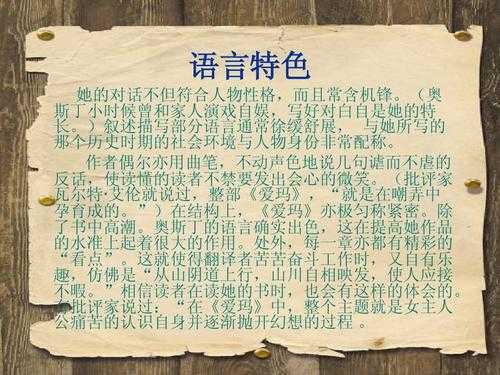 语言特色
她的对话不但符合人物性格，而且常含机锋。（奥
斯丁小时候曾和家人演戏自娱，写好对白自是她的特
长。）叙述描写部分语言通常徐缓舒展， 与她所写的
那个历史时期的社会环境与人物身份非常配称。
作者偶尔亦用曲笔，不动声色地说几句谑而不虐的
反话，使读懂的读者不禁要发出会心的微笑。（批评家
瓦尔特·艾伦就说过，整部《爱玛》，“就是在嘲弄中
孕育成的。”）在结构上，《爱玛》亦极匀称紧密。除
了书中高潮。奥斯丁的语言确实出色，这在提高她作品
的水准上起着很大的作用。处外，每一章亦都有精彩的
“看点”。这就使得翻译者苦苦奋斗工作时，又自有乐
趣，仿佛是“从山阴道上行，山川自相映发，使人应接
不暇。”相信读者在读她的书时，也会有这样的体会的。
批评家说过：“在《爱玛》中，整个主题就是女主人
公痛苦的认识自身并逐渐抛开幻想的过程 。